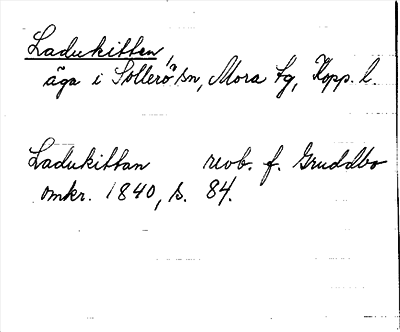 Ladukittan,
äga i Sollerö sn, Mora tg, Kopp. l.
Ladukittan revb. f. Gruddbo
omkr. 1840, s. 84.